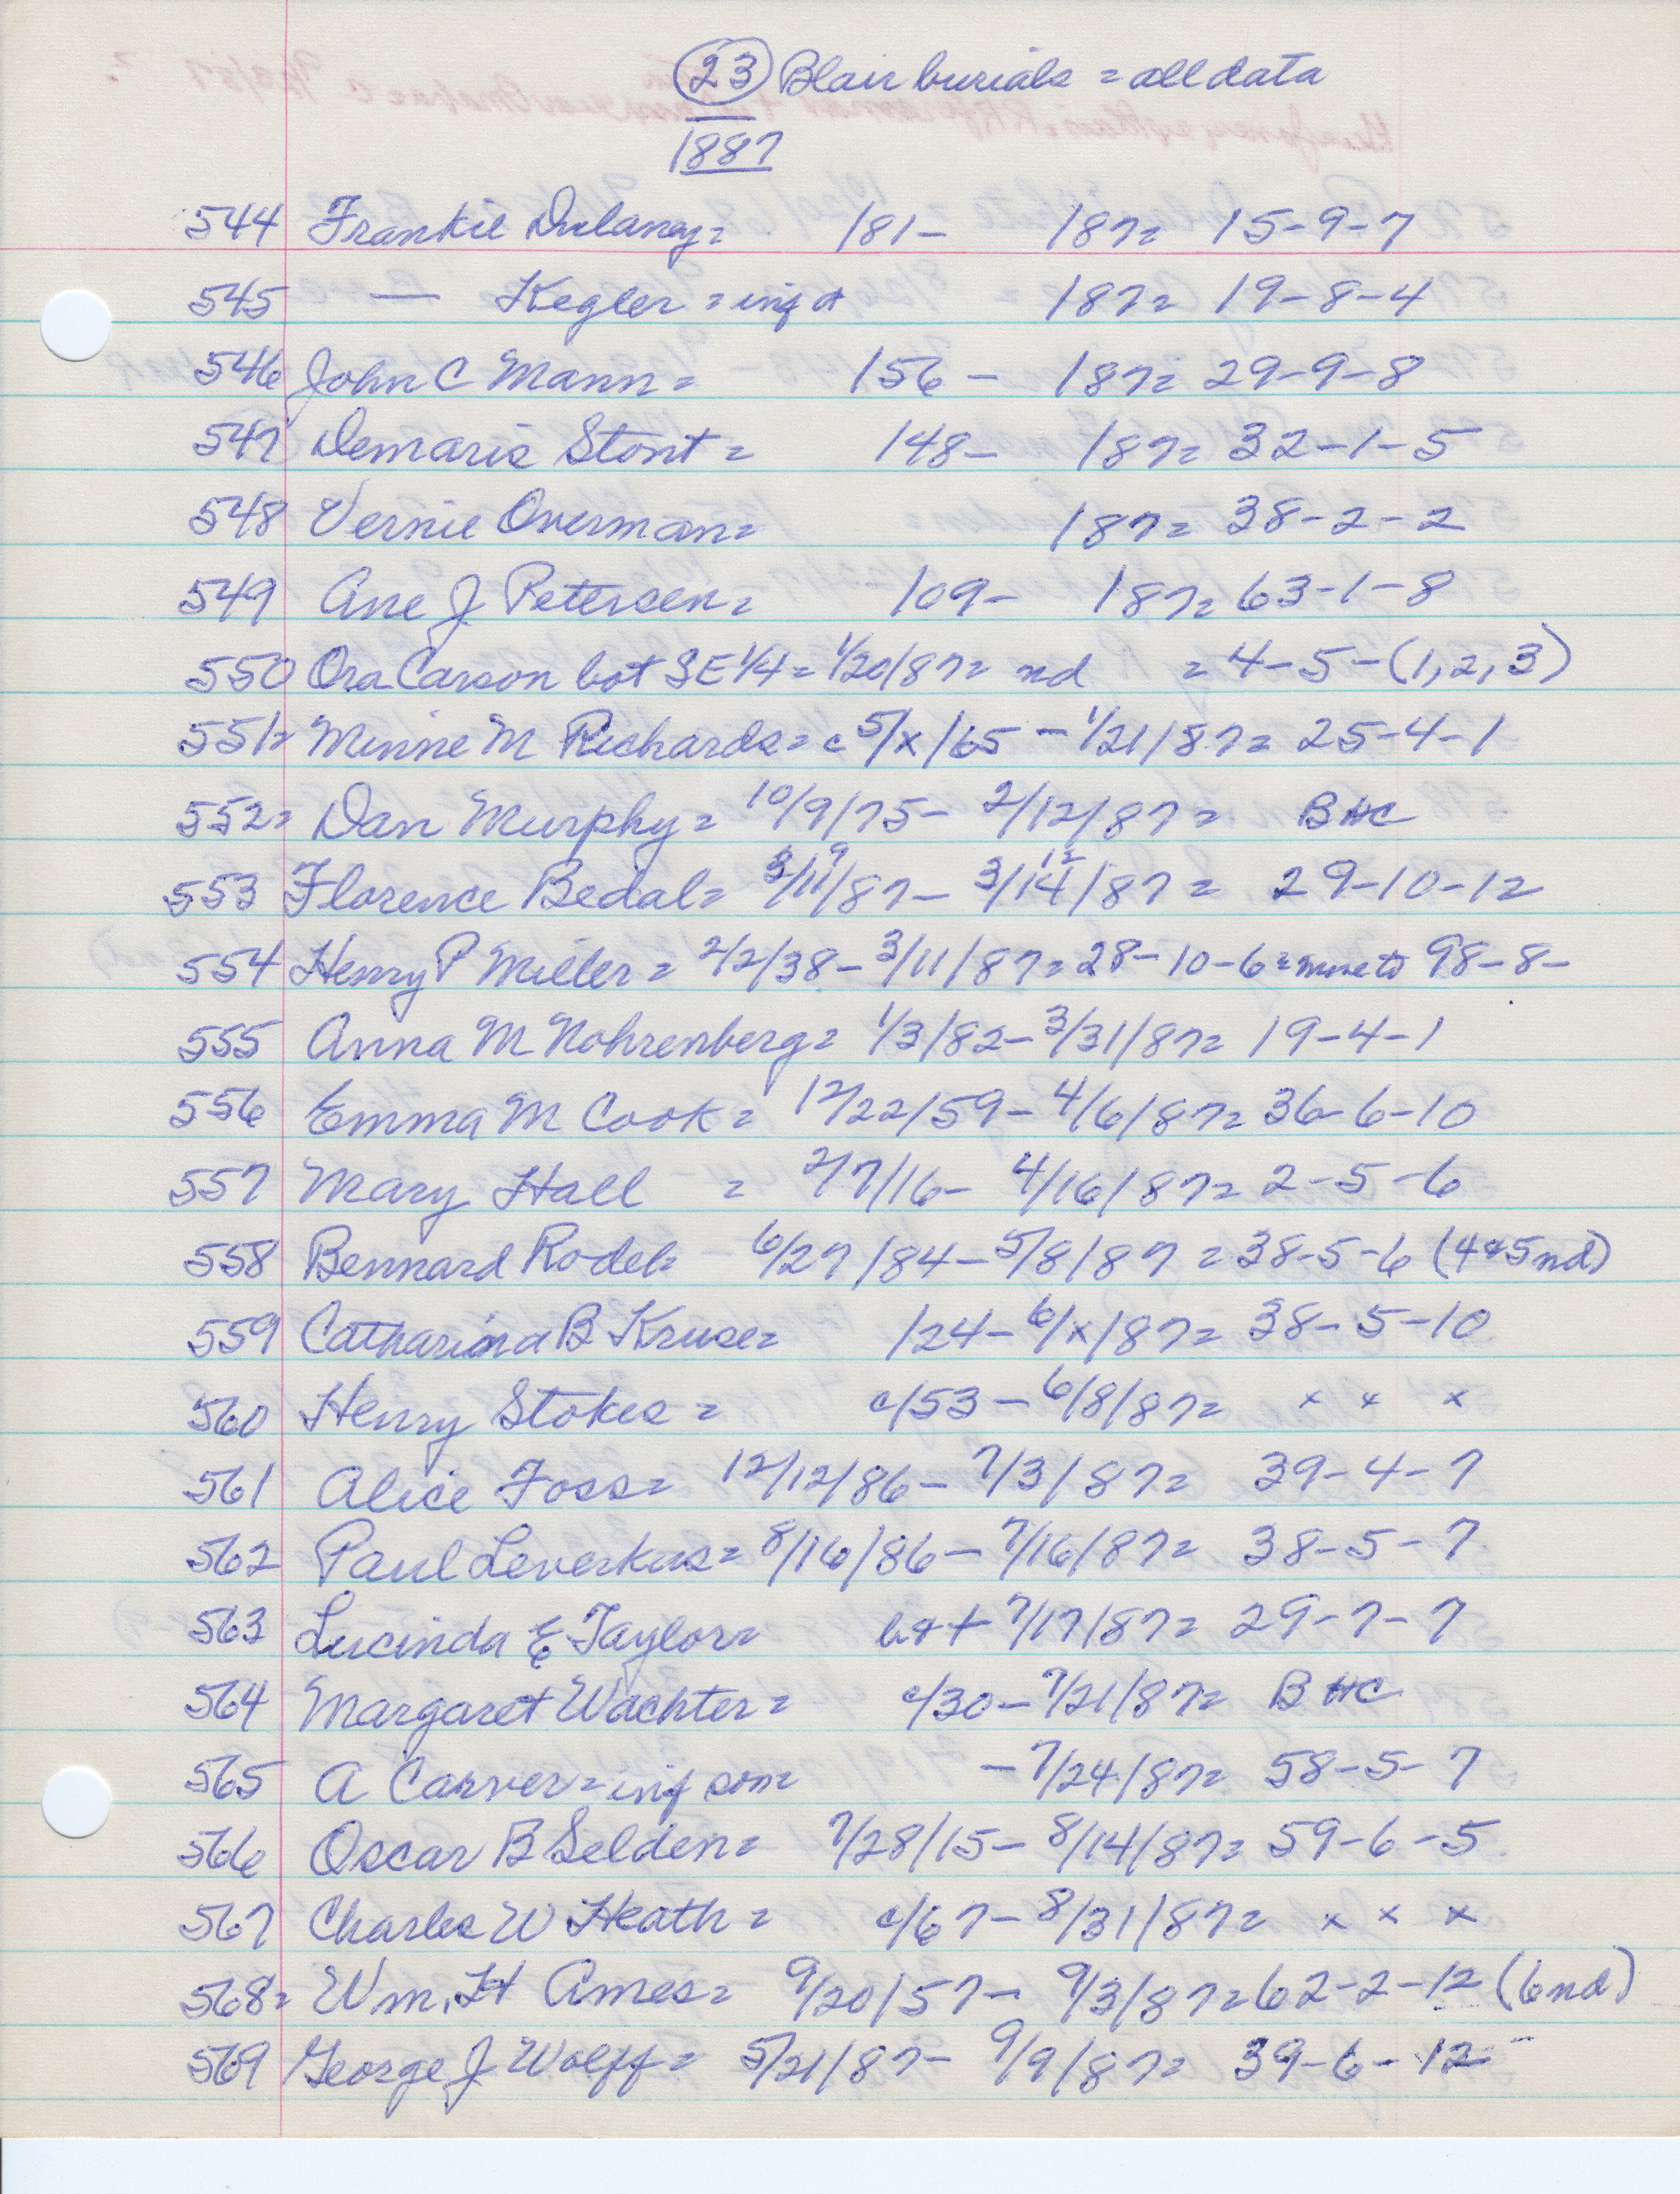 23 Blair burials = all data
1887
544 Frankie Dulaney = /81- /87= 15-9-7
545 — Kegler = inf d /87= 19-8-4
546 John C Mann = /56- /87= 29-9-8
547 Demaris Stont = /48- /87= 32-1-5
548 Vernie Overman= /87= 38-2-2
549 Ane J Petersen= /09- /87= 63-1-8
550 Ora Carson bot SE 1/4 = 1/20/87= nd = 4-5-(1,2,3)
551= Minne M Richards= c 5/x/65 - 1/21/87= 25-4-1
552= Dan Murphy = 10/9/75- 2/12/87= BHC
9 12
553 Florence Bedal= 3/11/87- 3/14/87= 29-10-12
554 Henry P Miller = 2/2/38- 3/11/87=28-10-6= move to 98-8-
555 Anna M Nohrenberg= 1/3/82-3/31/87= 19-4-1
556 Emma M Cook= 12/22/59- 4/6/87= 36-6-10
557 Mary Hall = 2/7/16- 4/16/87= 2-5-6
558 Bennard Rodel= 6/27/84-5/8/87=38-5-6 (4&5nd)
559 Catharina B Kruse= /24-6/x/87= 38-5-10
560 Henry Stokes = c/53-6/8/87= x x x
561 Alice Foss= 12/12/86- 7/3/87= 39-4-7
562 Paul Leverkus= 8/16/86- 7/16/87= 38-5-7
563 Lucinda E Taylor= 7/17/87= 29-7-7
564 Margaret Wachter= c/30-7/21/87= BHC
565 A Carver= inf son= -7/24/87= 58-5-7
566 Oscar B Selden= 7/28/15- 8/14/87= 59-6-5
567 Charles W Heath = c/67-8/31/87= x x x
568= Wm. H Ames= 9/20/57- 9/3/87=62-2-12 (6nd)
569 George J Wolff= 5/21/87- 9/9/87= 39-6-12